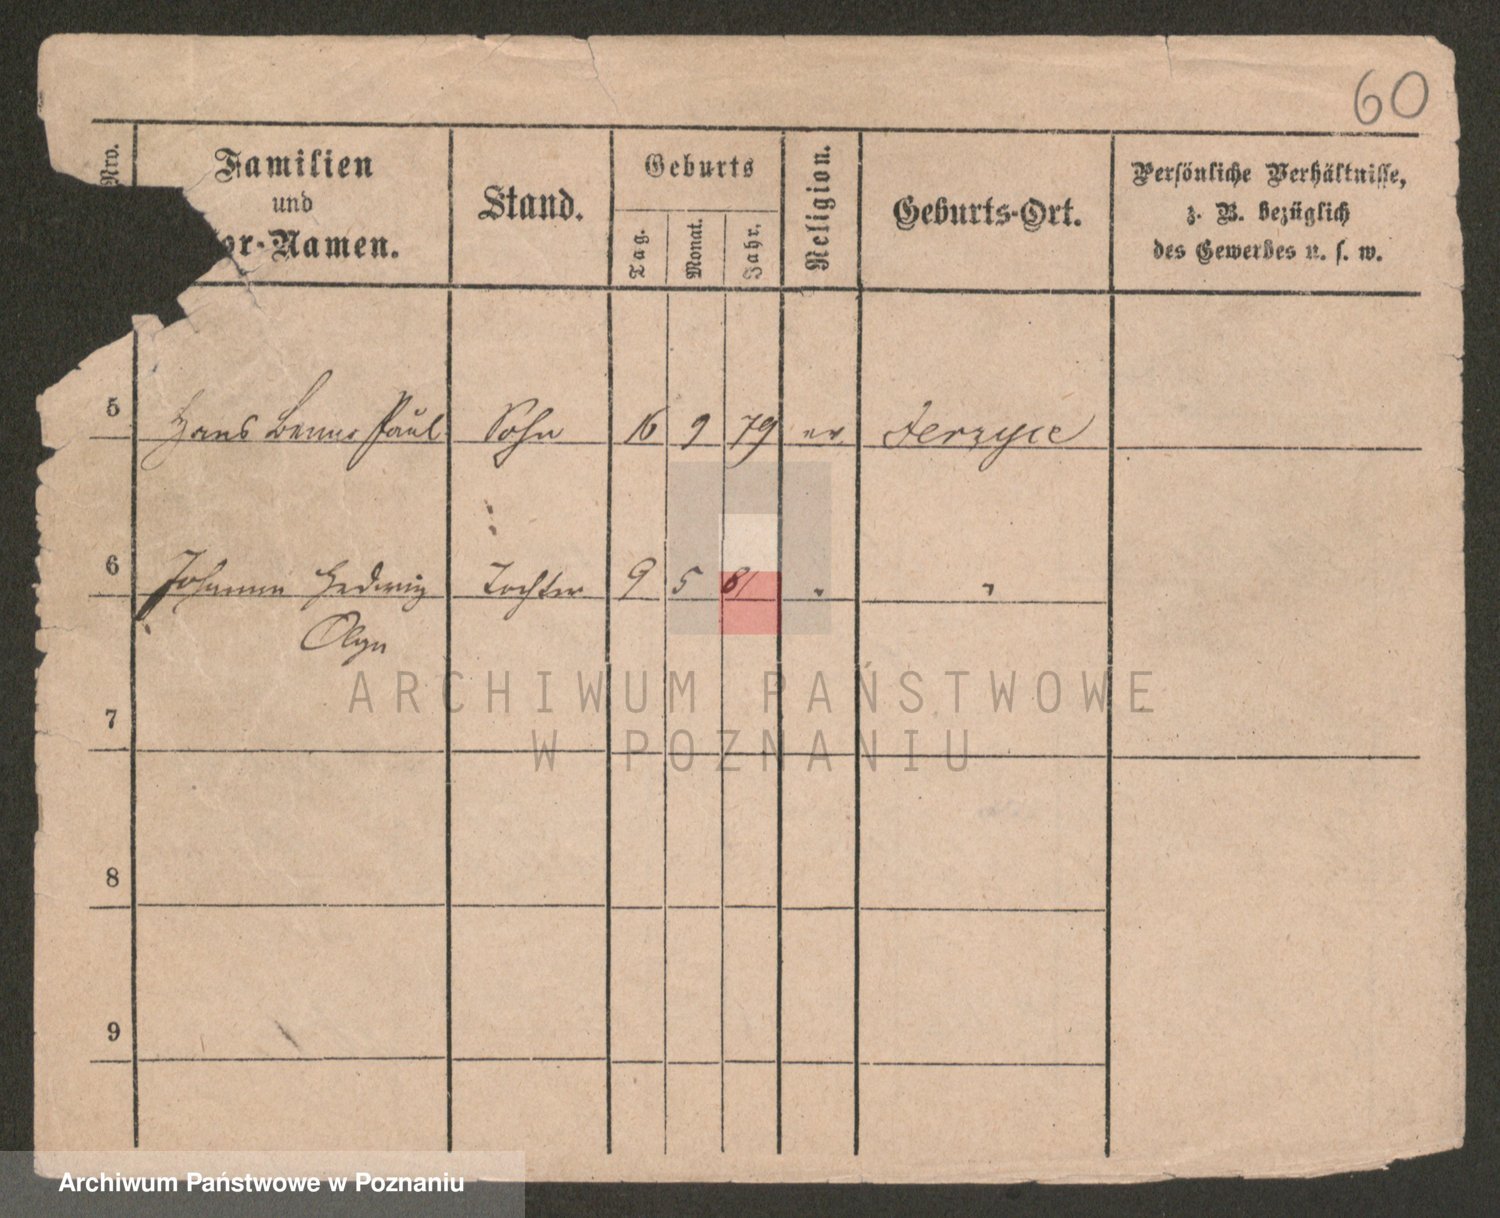 60
Nro.
Familien
und
or-Namen.
Stand.
Geburts
Tag.
Monat.
Jahr.
Religion.
Geburts-Ort.
Persönliche Verhältnisse,
z. B. bezüglich
des Gewerbes u. s. w.
5 Hans Benno Paul Sohn 16 9 79 ev Jerzyce
6 Johanna Hedwig Tochter 9 5 81 " "
Olga
7
8
9
ARCHIWUM PAŃSTWOWE
W POZNANIU
Archiwum Państwowe w Poznaniu